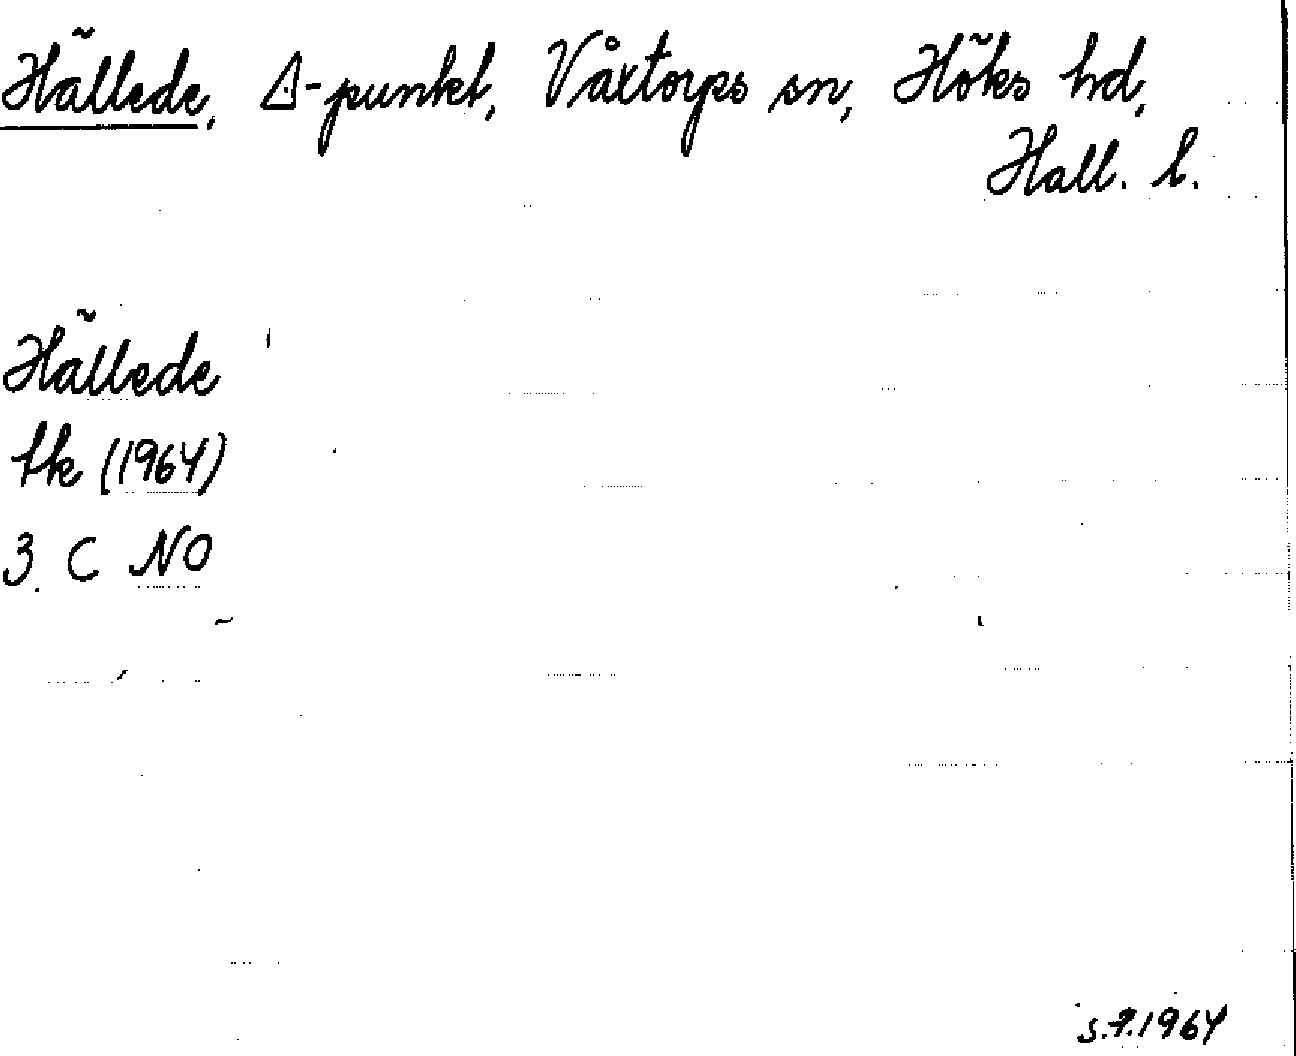 Hällede, Δ-punkt, Våxtorps sn, Höks hd,
Hall. l.
Hällede
tk (1964)
3 C NO
S.F.1964